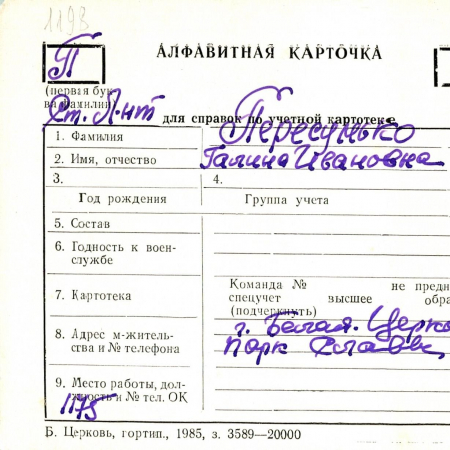 1193
АЛФАВИТНАЯ КАРТОЧКА
П
(первая бук
ва фамилии)
Ст. Л-нт для справок по учетной картотеке
1. Фамилия Пересунько
2. Имя, отчество Галина Ивановна
3. 4.
Год рождения Группа учета
5. Состав
6. Годность к воен-
службе
Команда № не предн
7. Картотека спецучет высшее обра
(подчеркнуть)
8. Адрес м-житель- г. Белая. Церко
ства и № телефона парк Славы
9. Место работы, дол-
жность и № тел. ОК
1175
Б. Церковь, гортип., 1985, з. 3589—20000